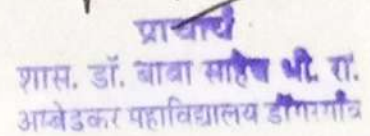 प्राचार्य
शास. डॉ. बाबा साहेब भी. रा.
अम्बेडकर महाविद्यालय डोंगरगाँव